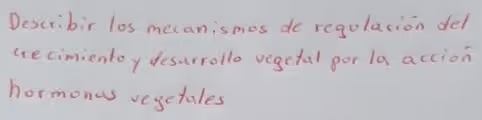 Describir los mecanismos de regulación del
crecimiento y desarrollo vegetal por la acción
hormonas vegetales